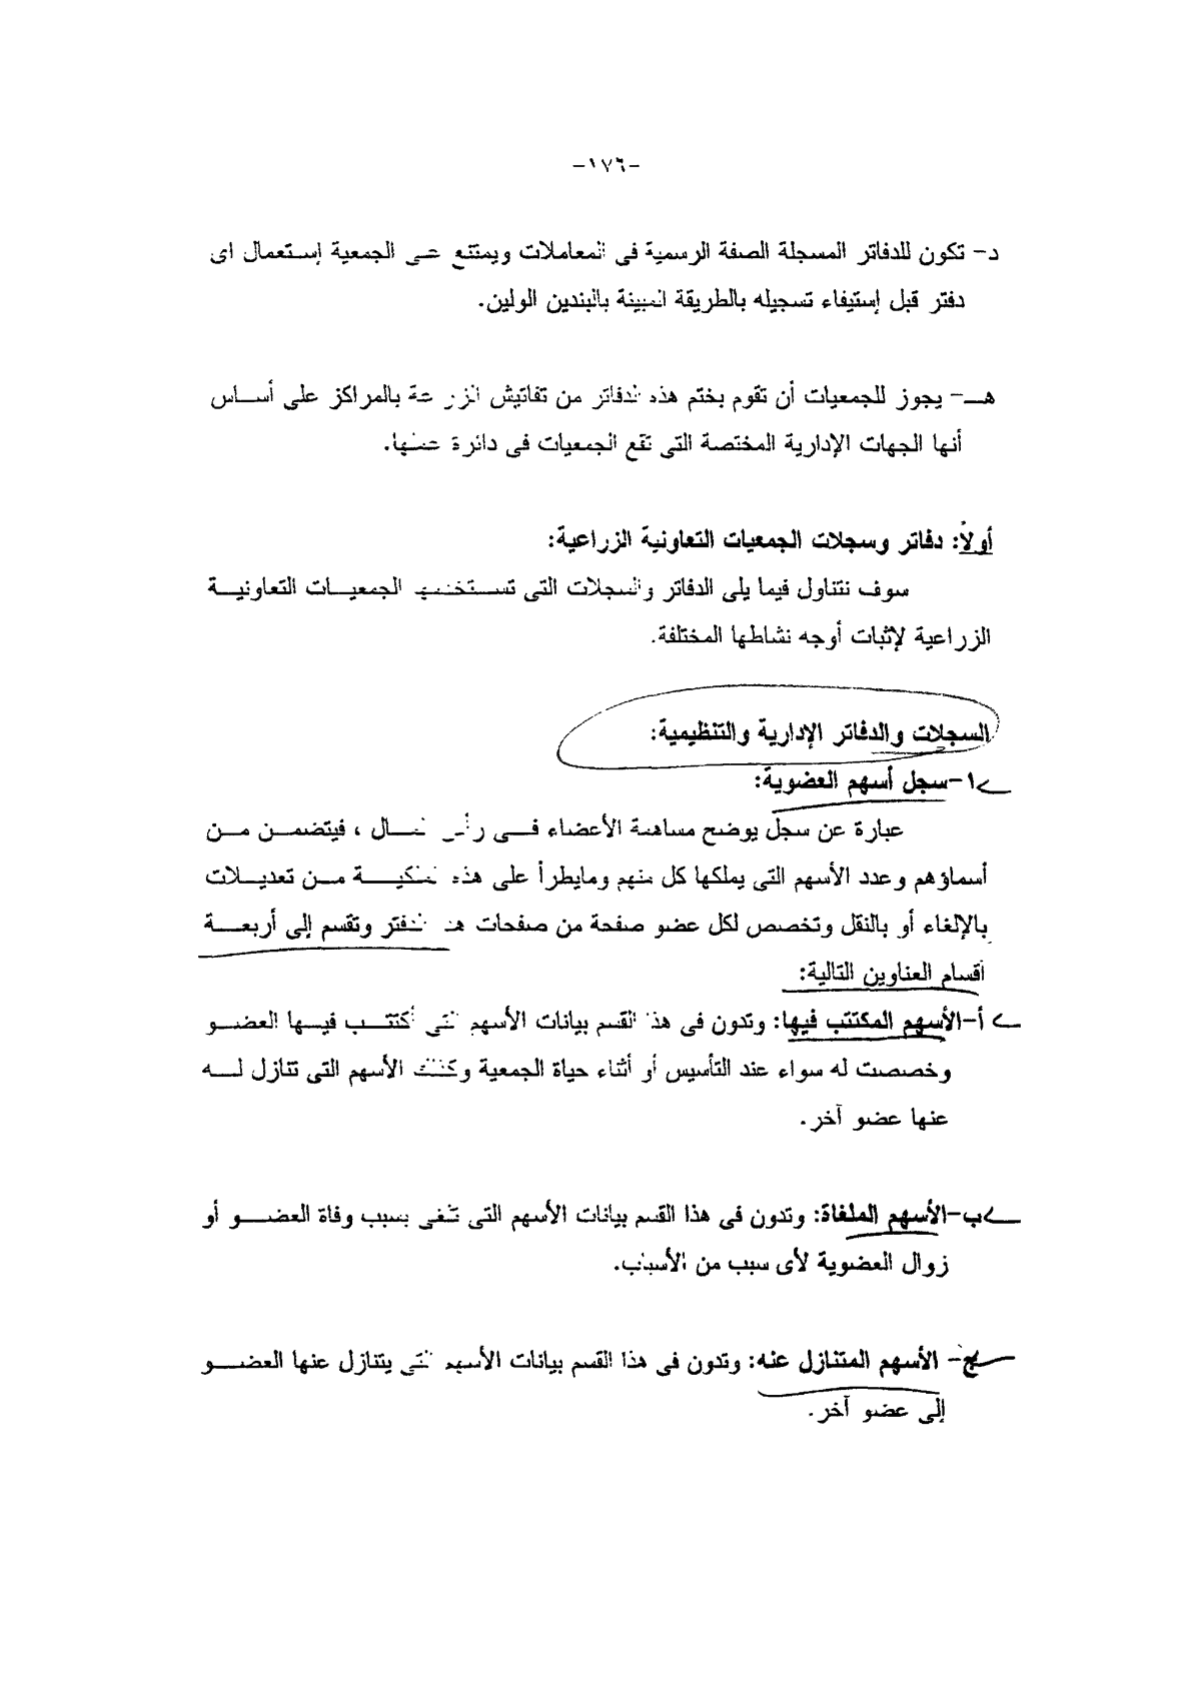 -١٧٦-
د- تكون للدفاتر المسجلة الصفة الرسمية فى المعاملات ويمتنع على الجمعية إستعمال اى
دفتر قبل إستيفاء تسجيله بالطريقة المبينة بالبندين الولين.
هـ- يجوز للجمعيات أن تقوم بختم هذه الدفاتر من تفاتيش الزراعة بالمراكز على أساس
أنها الجهات الإدارية المختصة التى تقع الجمعيات فى دائرة عملها.
أولاً: دفاتر وسجلات الجمعيات التعاونية الزراعية:
سوف نتناول فيما يلى الدفاتر والسجلات التى تستخدمها الجمعيات التعاونية
الزراعية لإثبات أوجه نشاطها المختلفة.
السجلات والدفاتر الإدارية والتنظيمية:
١-سجل أسهم العضوية:
عبارة عن سجل يوضح مساهمة الأعضاء فى رأس المال ، فيتضمن من
أسماؤهم وعدد الأسهم التى يملكها كل منهم ومايطرأ على هذه الملكية من تعديلات
بالإلغاء أو بالنقل وتخصص لكل عضو صفحة من صفحات هذا الدفتر وتقسم إلى أربعة
أقسام العناوين التالية:
أ-الأسهم المكتتب فيها: وتدون فى هذا القسم بيانات الأسهم التى أكتتب فيها العضو
وخصصت له سواء عند التأسيس أو أثناء حياة الجمعية وكذلك الأسهم التى تنازل له
عنها عضو آخر.
ب-الأسهم الملغاة: وتدون فى هذا القسم بيانات الأسهم التى تلغى بسبب وفاة العضو أو
زوال العضوية لأى سبب من الأسباب.
ج- الأسهم المتنازل عنه: وتدون فى هذا القسم بيانات الأسهم التى يتنازل عنها العضو
إلى عضو آخر.